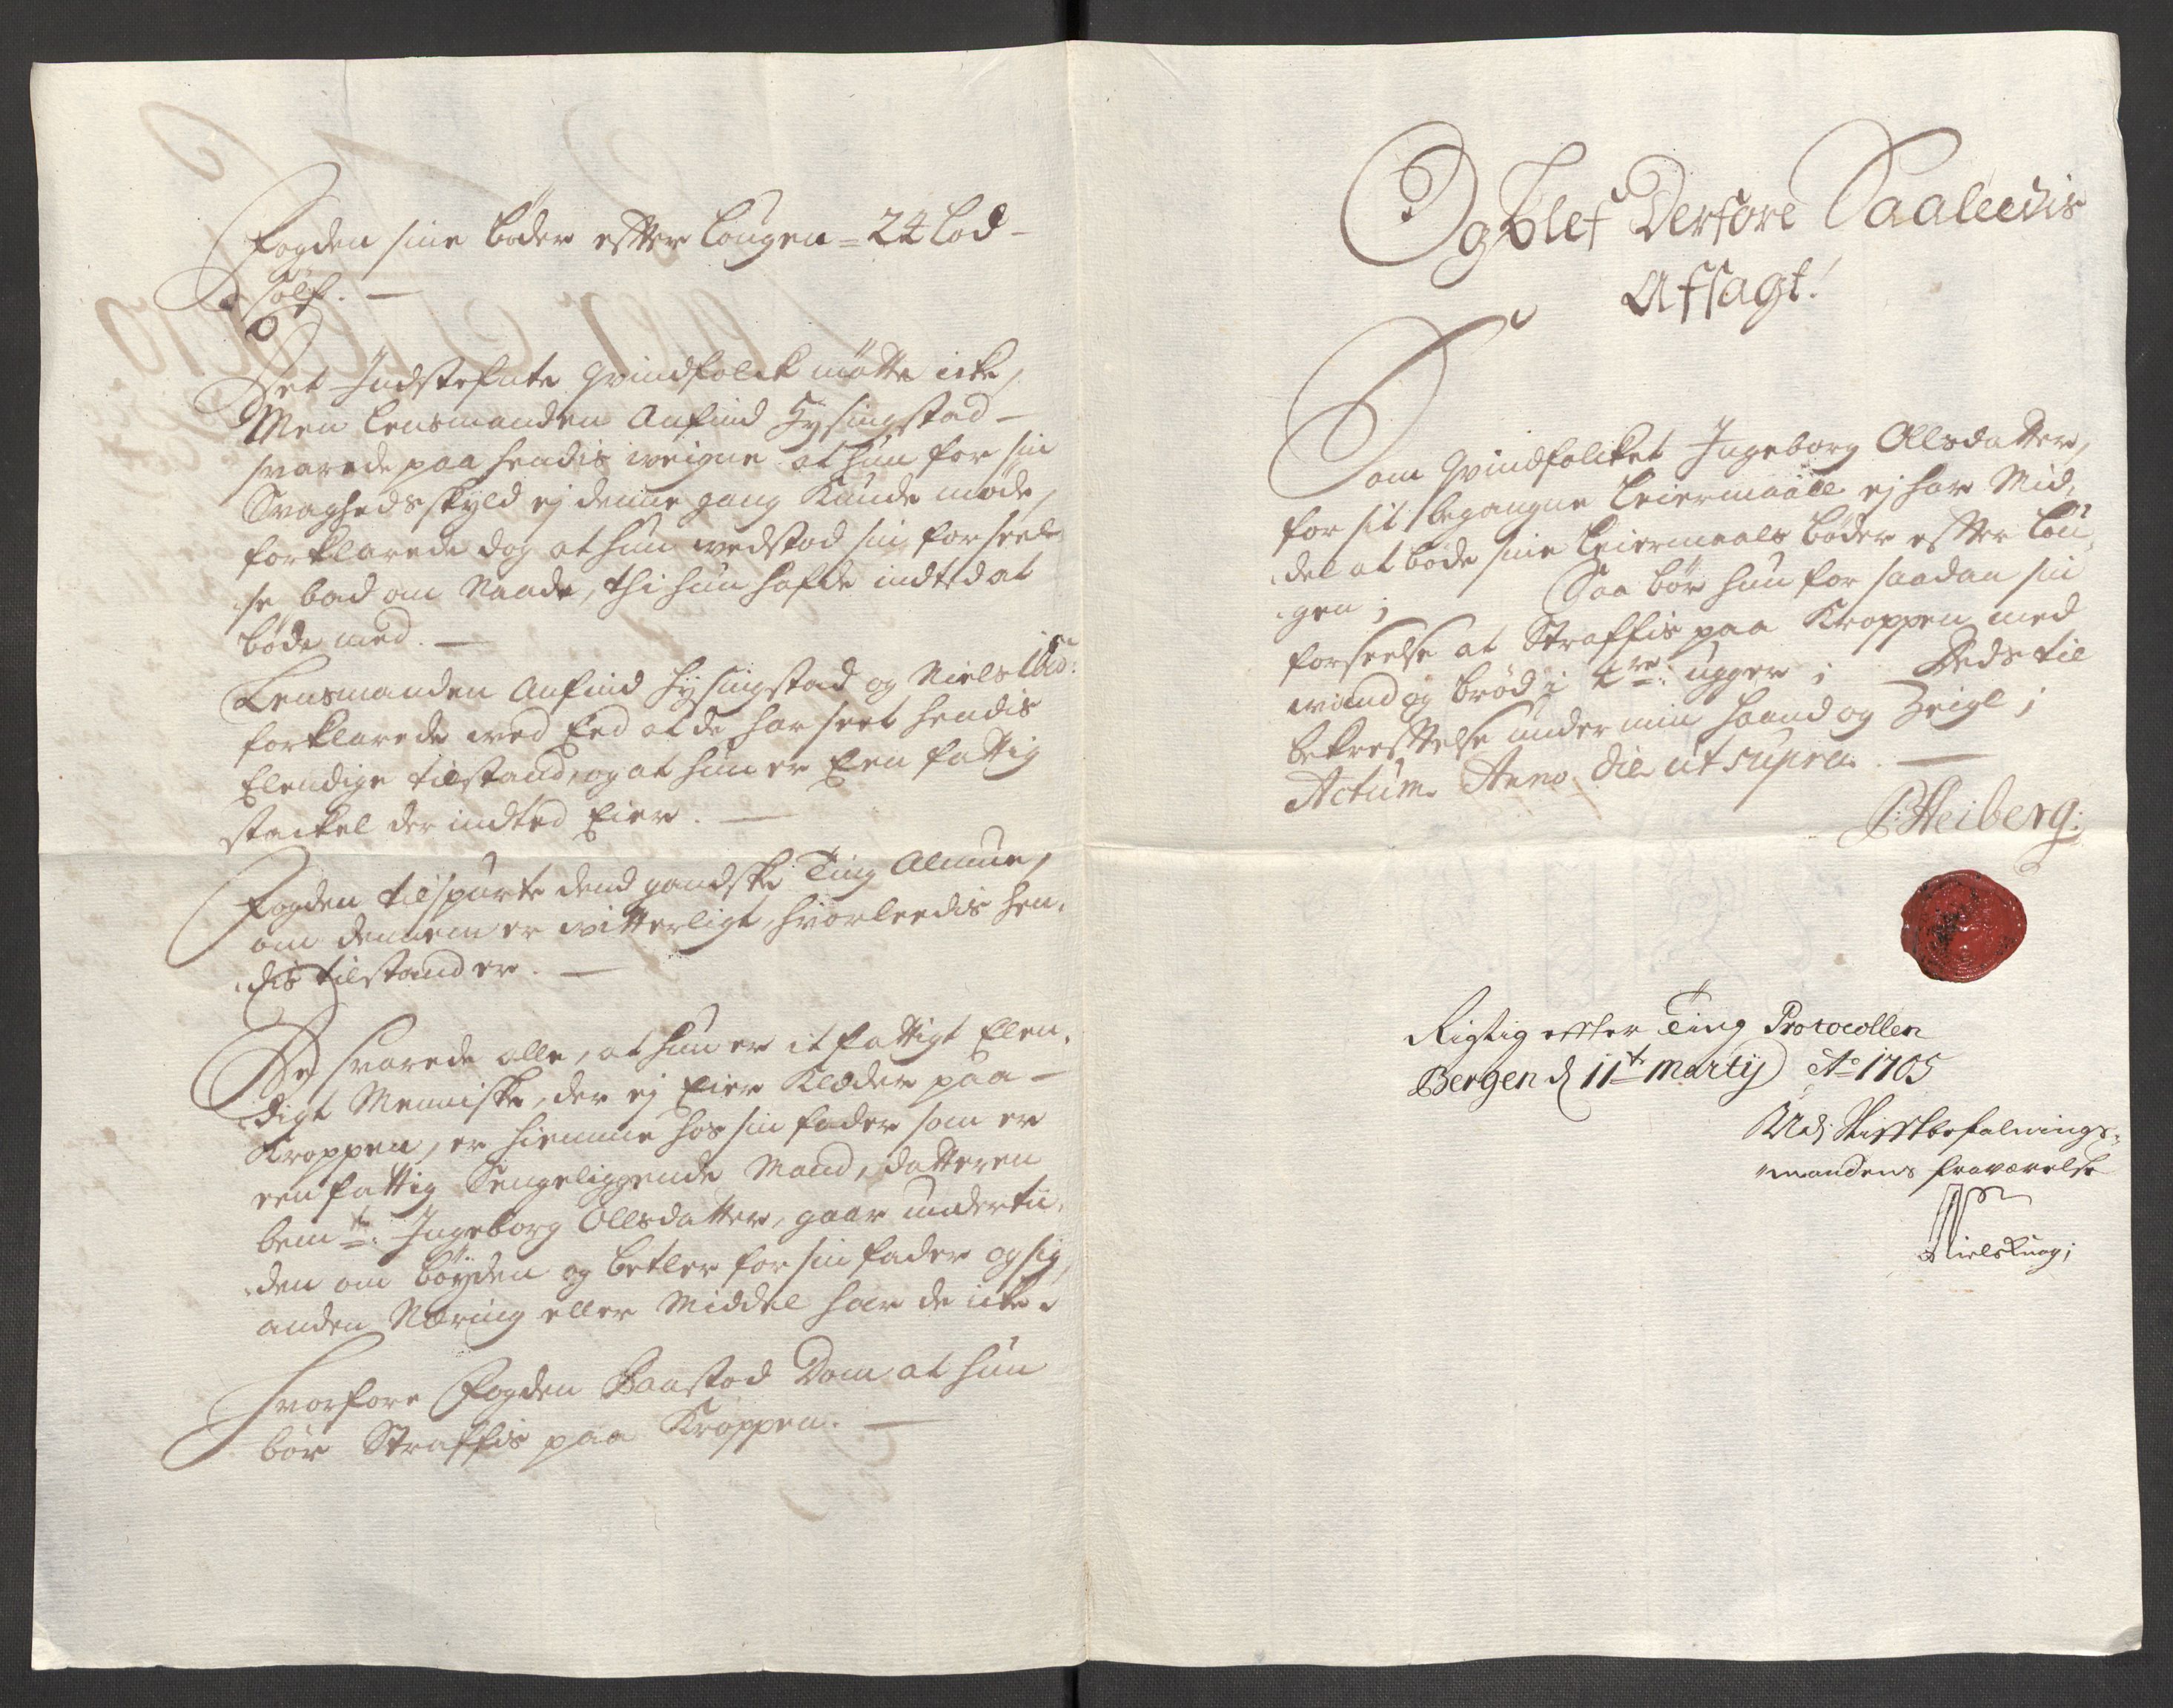 Fogden sine bøder effter Lougen = 24 Lod -
Sølf. -
Det Indstefnte Qvindfolck møtte icke,
Men Lensmanden Anfind Hysingstad -
svarede paa hendis weigne at hun for sin
Svagheds skyld ej denne gang kunde møde,
forklarede dog at hun wedstod sin forseel-
se, bad om Naade, thi hun hafde indted at
bøde med. -
Lensmanden Anfind Hysingstad og Niels
forklarede wed Eed at de har seet hendis
Elendige tilstand, og at hun er Een fattig
stackel der indted Eier. -
Fogden tilspurte dend gandske Ting Almue,
om dennem er vitterligt, hvorleedis hen-
dis tilstand er. -
De svarede alle, at hun er it fattigt Elen-
digt Menniske, der ej Eier Klæder paa -
Kroppen, er hiemme hos sin fader som er
een fattig Sengeliggende Mand, datteren
bemte: Ingeborg Ollsdatter, gaar undertii-
den om bøyden og betler for sin fader og sig,
anden Næring eller Middel har de icke.
Hvorfore Fogden Paastod Dom at hun
bør Straffis paa Kroppen. -
Og Blef Derfore Saaleedis
Afsagt!
Som Qvindfolcket Ingeborg Ollsdatter,
for sit begangne Leiermaall ej har Mid-
del at bøde sine Leiermaals bøder effter Lou-
gen; Saa bør hun for saadan sin
forseelse at Straffis paa Kroppen med
wand og brød i 4re: ugger; Dends til
bekrefftelse under min haand og Zeigl;
Actum Anno Die ut supra. -
P: Heiberg:
Rigtig effter Ting Protocollen
Bergen d 11te Martij Ao 1705
Udj Stifftbefalnings-
mandens fraværelse
Niels Knag;